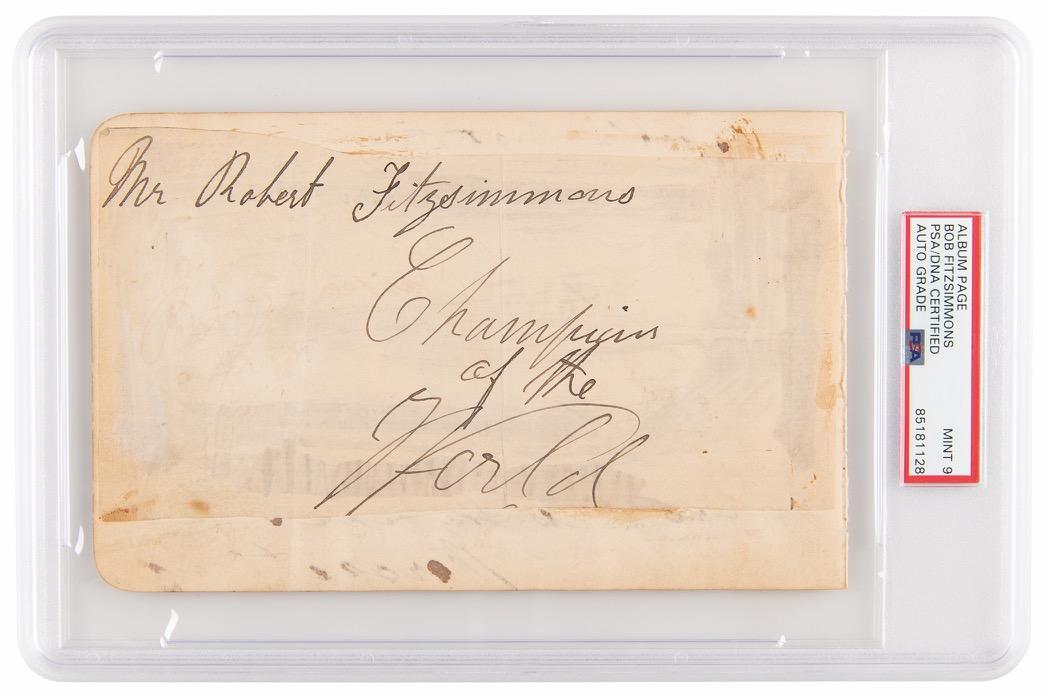 Mr Robert Fitzsimmons
Champion
of the
World
ALBUM PAGE
BOB FITZSIMMONS
PSA/DNA CERTIFIED MINT 9
AUTO GRADE 85181128
PSA